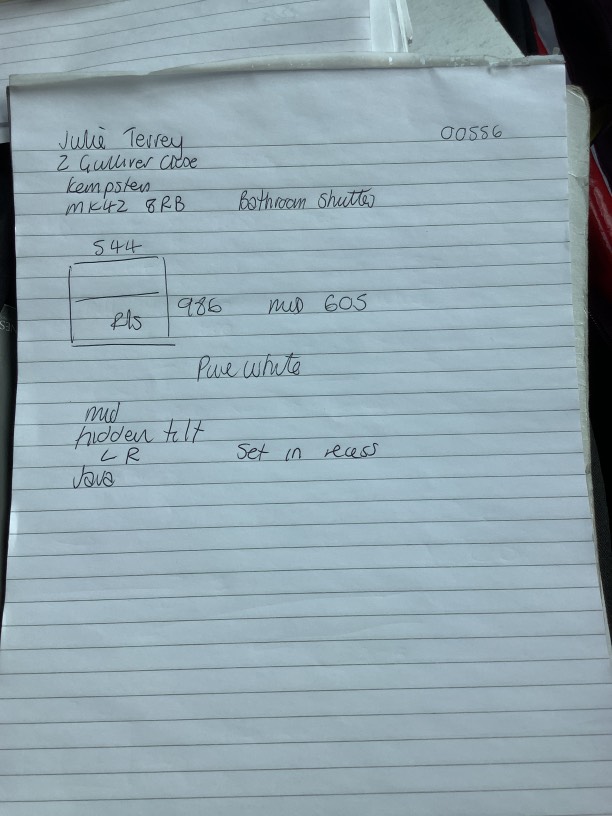 Julie Terrey 00556
2 Gulliver Close
Kempsten
MK42 8RB Bathroom Shutter
544
986 mid 605
Pure white
mid
hidden tilt
LR Set in recess
Java